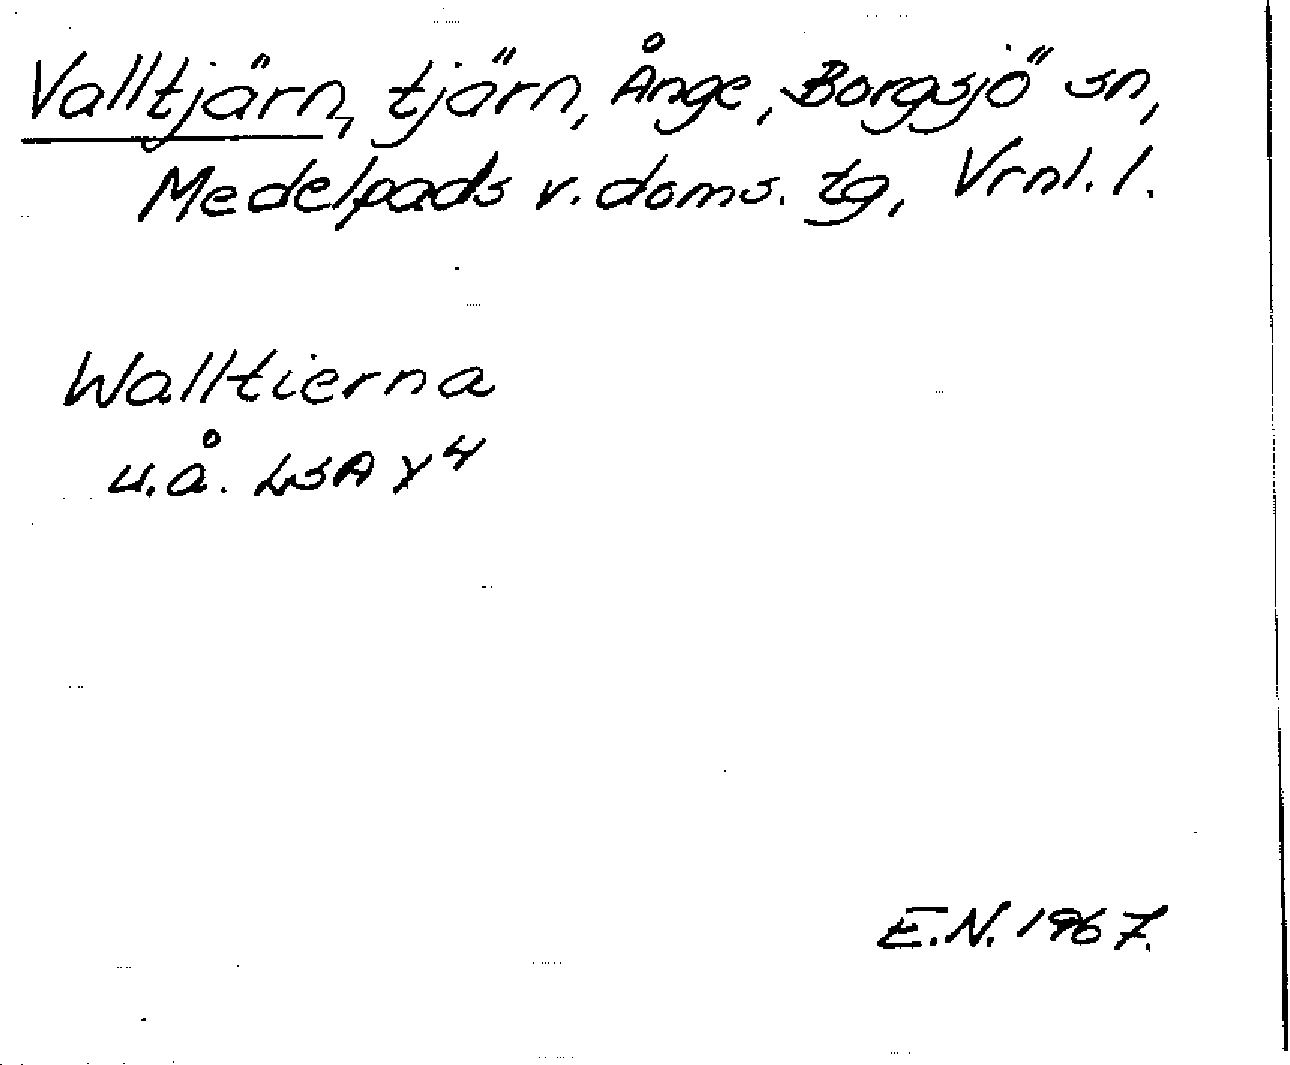 Valltjärn, tjärn, Ånge, Borgsjö sn,
Medelpads v. doms. tg, Vrnl. l.
Walltierna
u.å. LSA Y4
E.N. 1967.